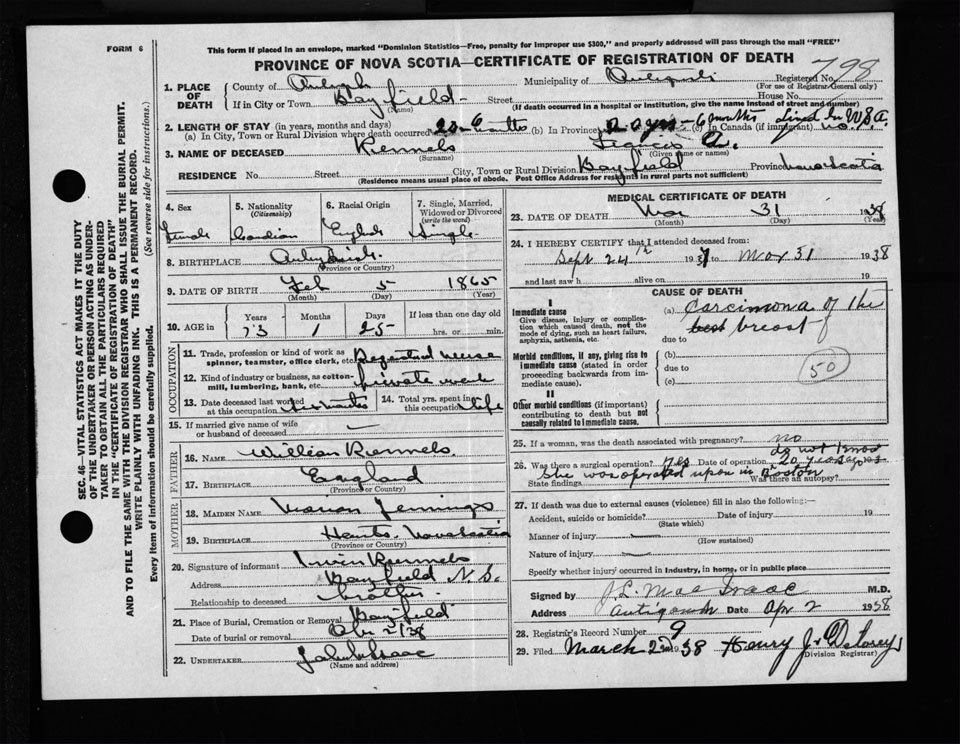 FORM 6
This form if placed in an envelope, marked "Dominion Statistics—Free, penalty for improper use $300," and properly addressed will pass through the mail "FREE"
PROVINCE OF NOVA SCOTIA—CERTIFICATE OF REGISTRATION OF DEATH
798
1. PLACE OF DEATH
County of Municipality of Registered No.
(For use of Registrar-General only)
If in City or Town Bayfield Street House No.
(Name) (If death occurred in a hospital or institution, give name instead of street and number)
2. LENGTH OF STAY (in years, months and days)
(a) In City, Town or Rural Division where death occurred 6 months (b) In Province 20 yrs - 6 months (c) In Canada (if immigrant) no. Lived in U.S.A.
3. NAME OF DECEASED Kennels
(Surname) (Given name or names)
RESIDENCE No. Street City, Town or Rural Division Bayfield Province Nova Scotia
(Residence means usual place of abode. Post Office Address for residents in rural parts not sufficient)
4. Sex 5. Nationality (Citizenship) 6. Racial Origin 7. Single, Married, Widowed or Divorced (write the word)
Female Canadian English Single
8. BIRTHPLACE Antigonish
(Province or Country)
9. DATE OF BIRTH Feb 5 1865
(Month) (Day) (Year)
10. AGE in Years Months Days If less than one day old
73 1 25 hrs. or min.
OCCUPATION
11. Trade, profession or kind of work as spinner, teamster, office clerk, etc. Registered nurse
12. Kind of industry or business, as cotton-mill, lumbering, bank, etc. private work
13. Date deceased last worked at this occupation
14. Total yrs. spent in this occupation life
15. If married give name of wife or husband of deceased —
FATHER
16. NAME William
17. BIRTHPLACE England
(Province or Country)
MOTHER
18. MAIDEN NAME Marian Jennings
19. BIRTHPLACE Hants Nova Scotia
(Province or Country)
20. Signature of informant Irwin
Address Bayfield N.S.
Relationship to deceased brother
21. Place of Burial, Cremation or Removal Bayfield
Date of burial or removal Apr 2/38
22. UNDERTAKER
(Name and address)
MEDICAL CERTIFICATE OF DEATH
23. DATE OF DEATH Mar 31 1938
(Month) (Day) (Year)
24. I HEREBY CERTIFY that I attended deceased from:
Sept 24th 1937 to Mar 31 1938
and last saw h alive on 19
CAUSE OF DEATH
I
Immediate cause
Give disease, injury or complication which caused death, not the mode of dying, such as heart failure, asphyxia, asthenia, etc.
(a) Carcinoma of the
breast
due to
Morbid conditions, if any, giving rise to immediate cause (stated in order proceeding backwards from immediate cause).
(b)
due to
(c)
50
II
Other morbid conditions (if important) contributing to death but not causally related to immediate cause.
25. If a woman, was the death associated with pregnancy? no
do not know
26. Was there a surgical operation? Yes Date of operation 20 years ago 193
She was operated upon in Boston
State findings Was there an autopsy?
27. If death was due to external causes (violence) fill in also the following:—
Accident, suicide or homicide? Date of injury 19
(State which)
Manner of injury —
(How sustained)
Nature of injury —
Specify whether injury occurred in industry, in home, or in public place
Signed by J.L. MacIsaac M.D.
Address Antigonish Date Apr 2 1938
28. Registrar's Record Number 9
29. Filed March 2nd 1938 Henry J.
(Division Registrar)
SEC. 46—VITAL STATISTICS ACT MAKES IT THE DUTY
OF THE UNDERTAKER OR PERSON ACTING AS UNDER-
TAKER TO OBTAIN ALL THE PARTICULARS REQUIRED
IN THE "CERTIFICATE OF REGISTRATION OF DEATH"
AND TO FILE THE SAME WITH THE DIVISION REGISTRAR WHO SHALL ISSUE THE BURIAL PERMIT.
WRITE PLAINLY WITH UNFADING INK. THIS IS A PERMANENT RECORD.
Every item of information should be carefully supplied. (See reverse side for instructions.)